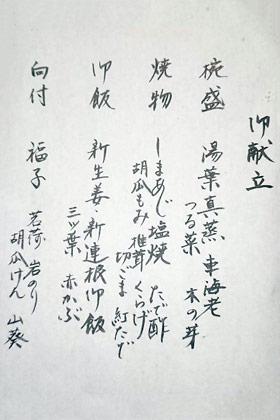 御献立
椀盛 湯葉真蒸 車海老
つる菜 木の芽
焼物 しまあじ塩焼 たで酢
胡瓜もみ 椎茸 くらげ
切ごま 紅たで
御飯 新生姜・新連根御飯
三ッ葉 赤かぶ
向付 福子 茗荷 岩のり
胡瓜けん 山葵